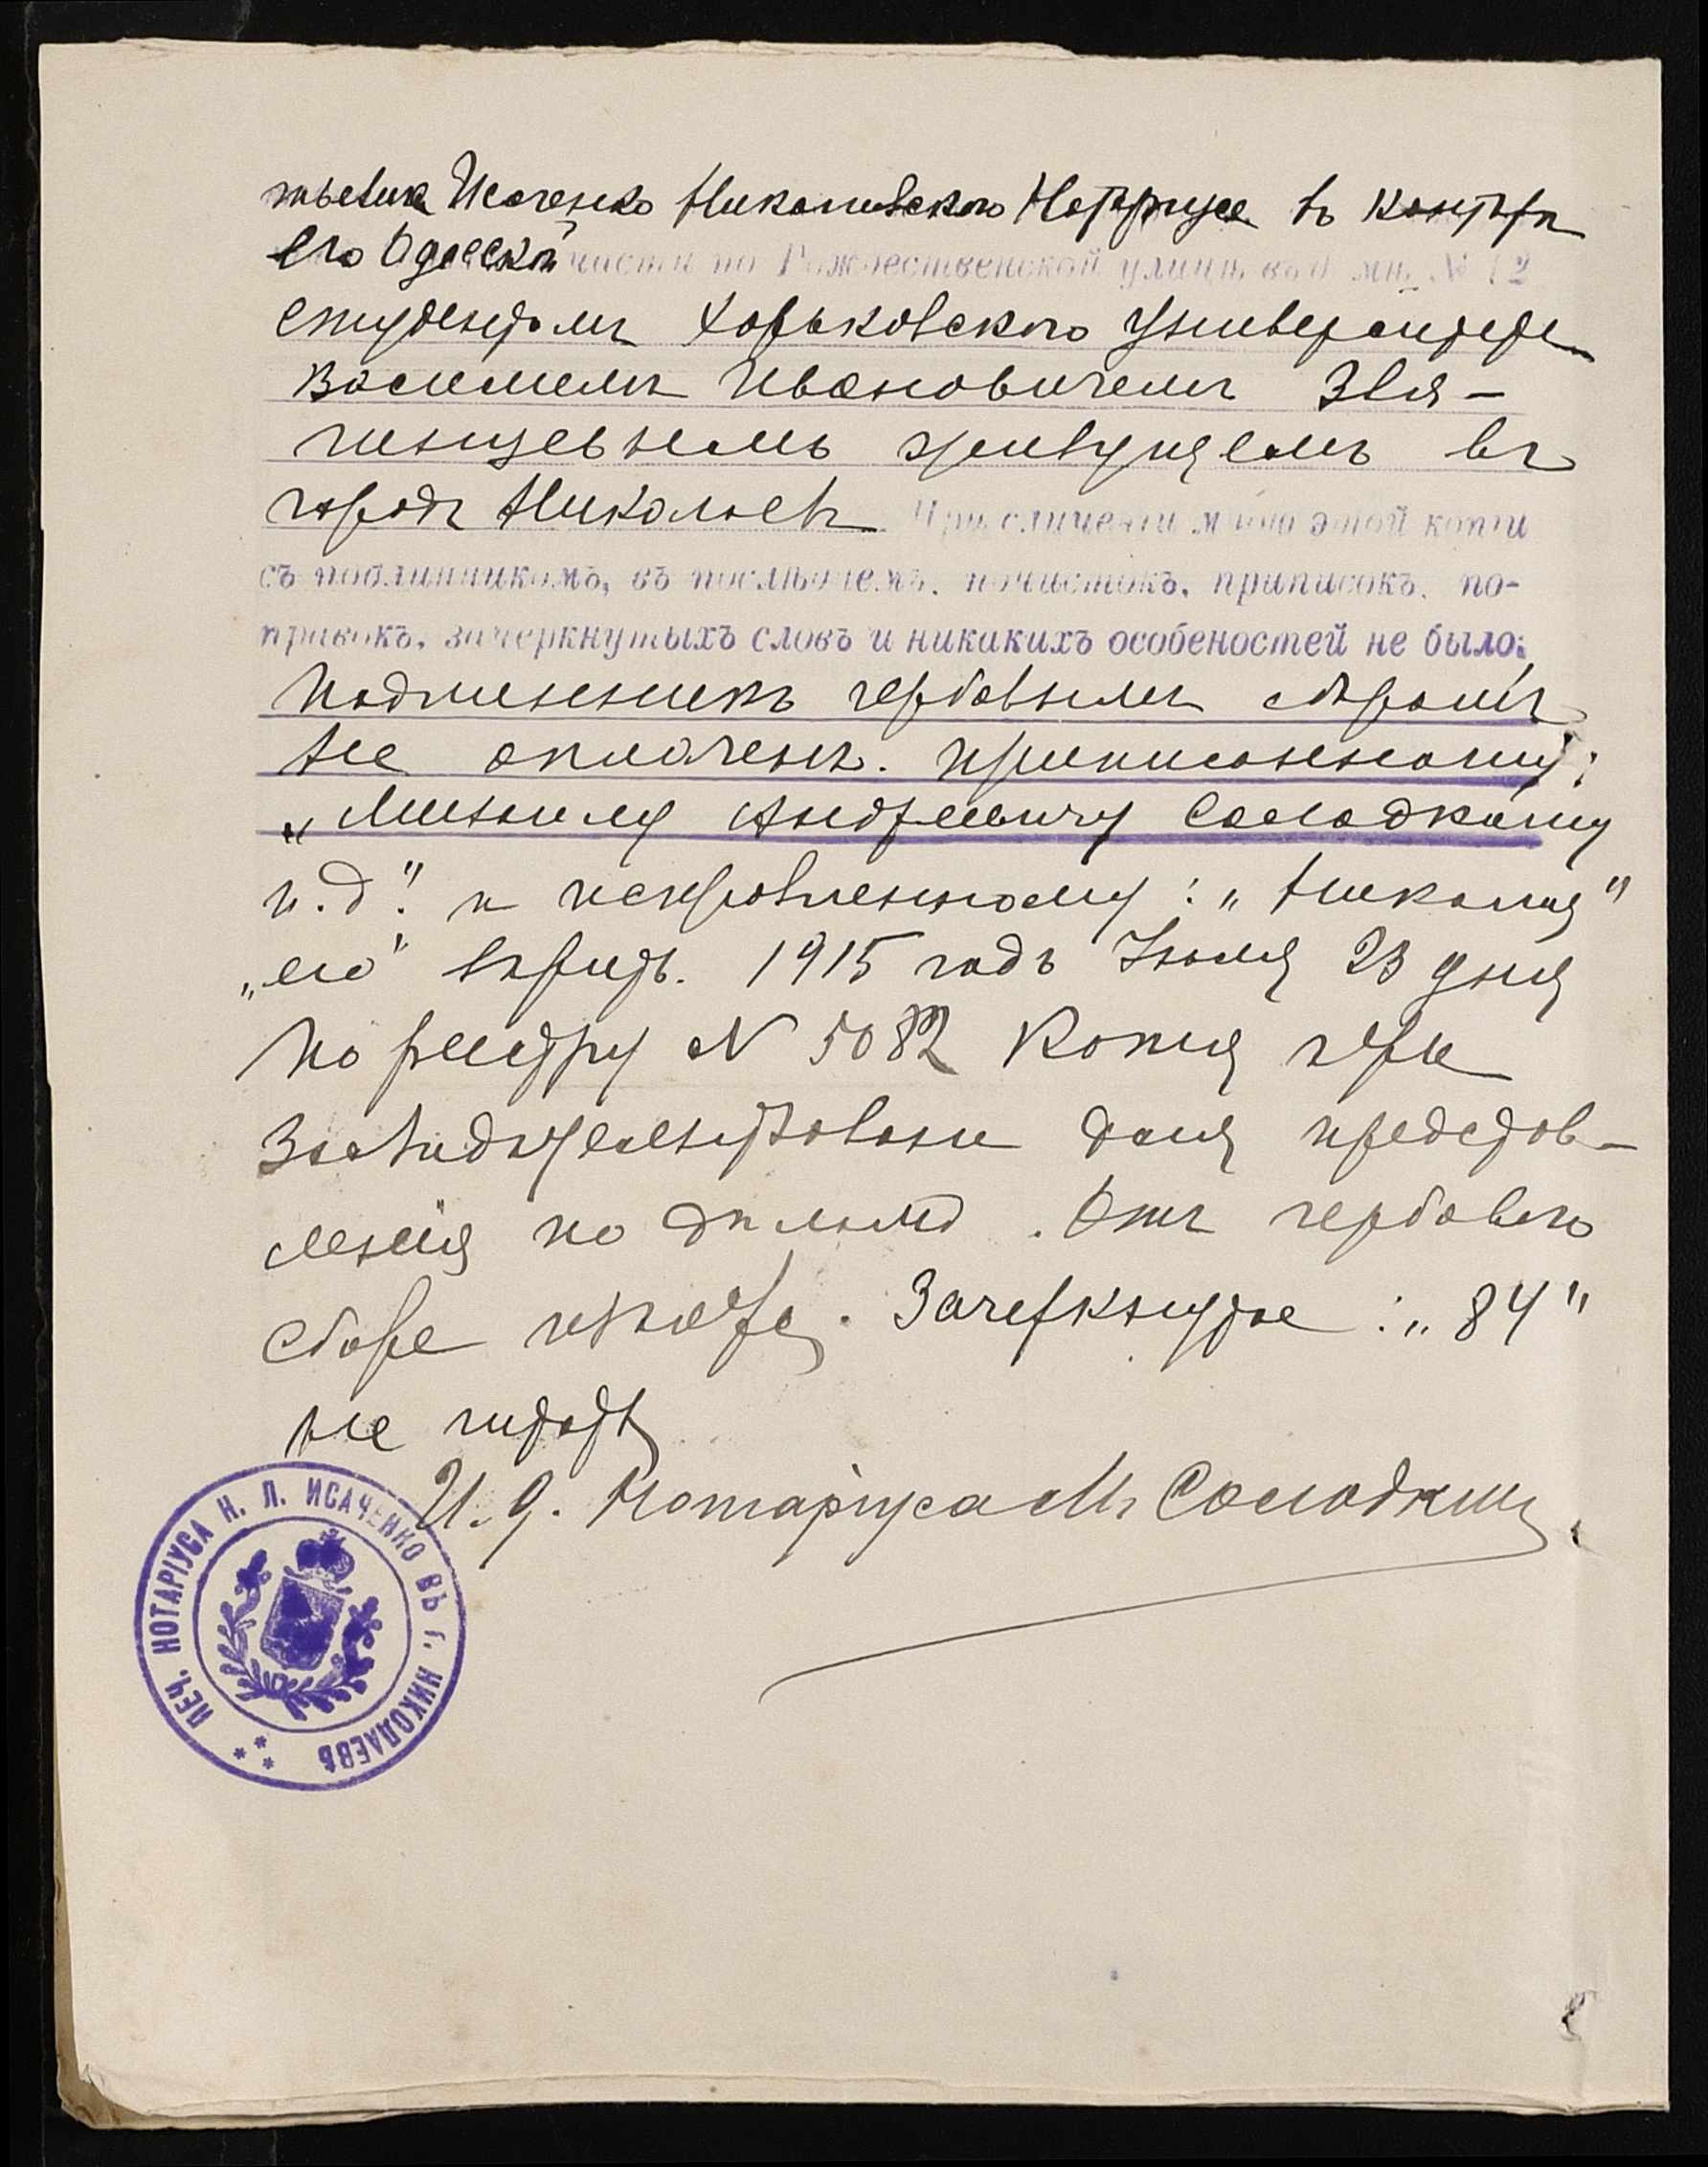 тьевича Исаченко Николаевского Нотаріуса въ конторѣ
его Одесской части по Рождественской улицѣ въ д мѣ № 12
студентомъ Харьковского Университета
Василіемъ Ивановичемъ Звя-
гинцевымъ живущемъ въ
городѣ Николаевѣ При сличеніи мною этой копіи
съ подлинникомъ, въ послѣднемъ, почистокъ, приписокъ, по-
правокъ, зачеркнутыхъ словъ и никакихъ особеностей не было:
Подлинникъ гербовымъ сборомъ
не оплаченъ. Приписанному:
„Михаилу Андреевичу Солодкому
и.д." и исправленному: „Николая"
„его" вѣрить. 1915 годъ Іюля 23 дня
По реестру N 5082 Копія эта
засвидѣтельствована для представ-
ленія по дѣламъ. Отъ гербового
сбора изъята. Зачеркнутое: „84"
не читать
И. д. Нотаріуса М Солодкій
ПЕЧ. НОТАРІУСА Н. Л. ИСАЧЕНКО ВЪ Г. НИКОЛАЕВѢ